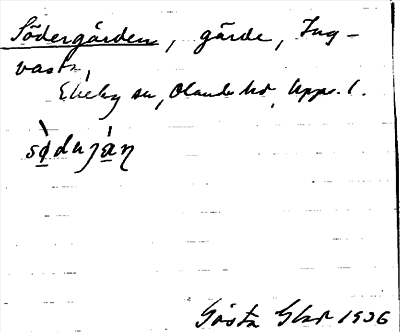 Södergården, gärde, Ing-
vasta
Ekeby sn, Olands hd, Upps. l.
södujan
Gösta 1936